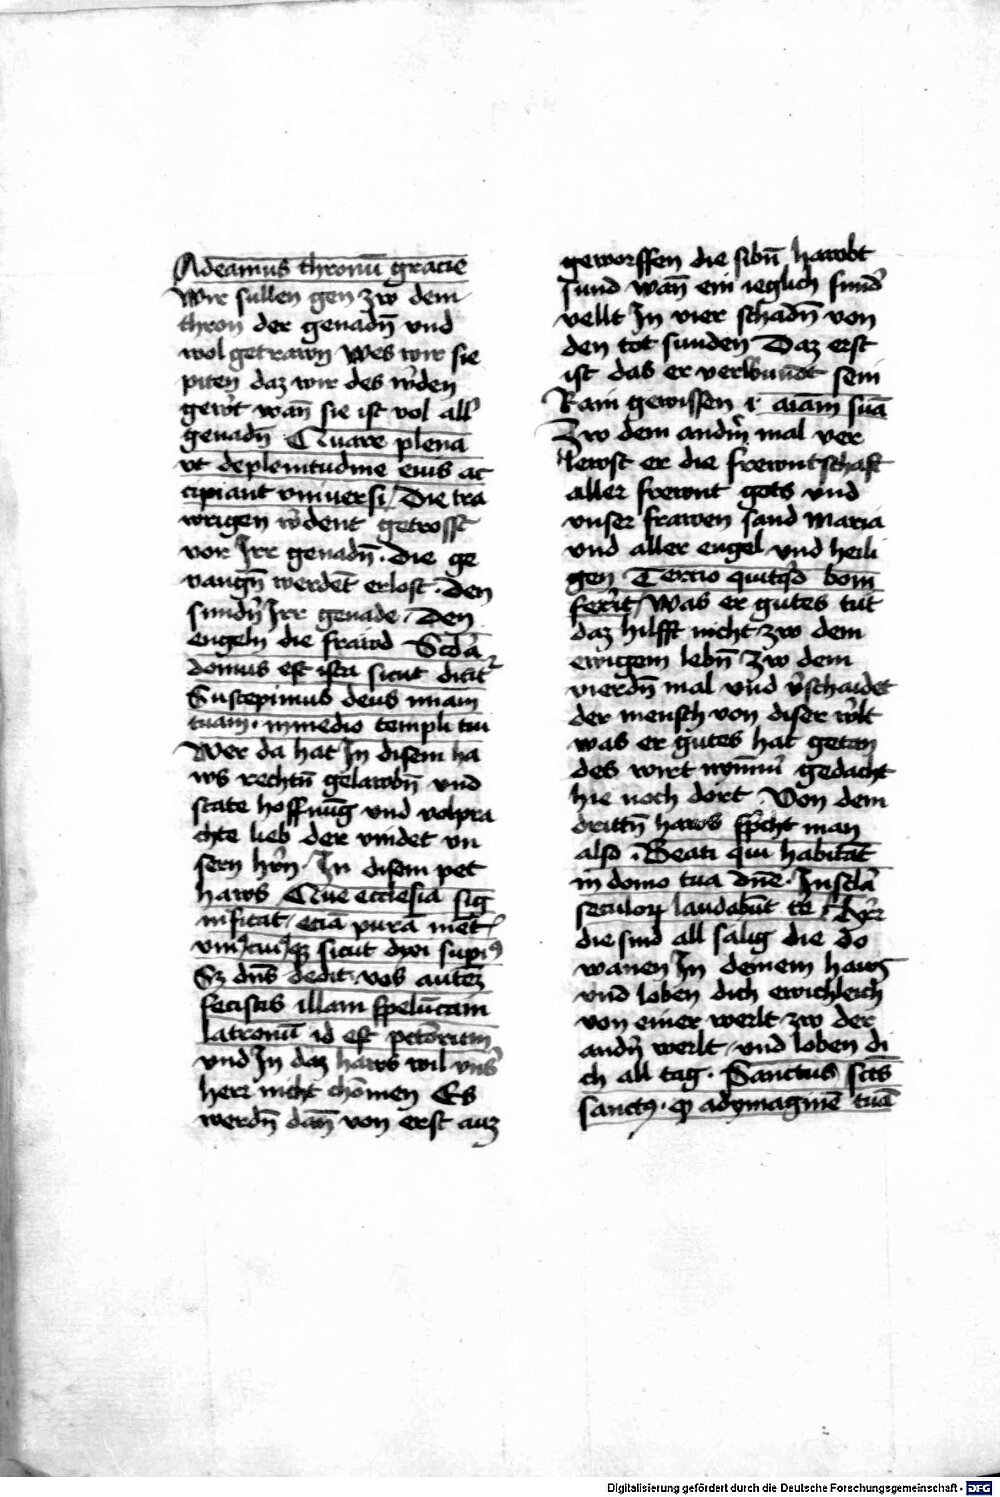 Adeamus thronū gracie
Wir sullen gen zw dem
thron der genadn̄ vnd
wol getrawn Wes wir sie
piten daz wir des w̄den
gew̄t wan̄ sie ist vol all̄
genadn̄ Quare plenā
vt deplenitudine eius ac
cipiant vniuersi Die tra
wrigen w̄dent getrosst
vor Irr genadn̄ . Die ge
vangn̄ werdet̄ erlost . Den
sundn̄ Irr genade . Den
engeln die frawd Scd̄a
domus est ista sicut dicit̄
Suscepimus deus miam
tuam . inmedio templi tui
Wer da hat In disem ha
ws rechtn̄ gelawbn̄ vnd
state hoffnūg vnd volpra
chte lieb der vindet vn
sern hr̄n . In disem pet
haws Que ecclesia sig
nificat / eciā purā ment̄
sicut dixi supi⁹
Sz dn̄s dedit . vos autez
fecistis illam spelūcam
latronū id est
vnd In daz haws wil vns̄
herr nicht chōmen Es
werdn̄ dan̄ von erst auz
geworffen die sibn̄ hawbt
sund wan̄ ein ieglich sund̄
vellt In vier schadn̄ von
den tot sunden Daz erst
ist das er verwundt sein
Rain gewissen aiam suā
Zw dem andn̄ mal ver
lewst er die frewntschaft
aller frewnt gots vnd
vnser frawen sand Maria
vnd aller engel vnd heili
gen Tercio quitq̄d bom
fer̄it / Was er gutes tut
daz hilfft nicht zw dem
ewigem lebn̄ Zw dem
vierdn̄ mal vnd v̄schaidet
der mensch von diser w̄lt
was er gutes hat getan
des wirt nym̄m̄ gedacht
hie noch dort . Von dem
drittn̄ haws sp̄cht man
also . Beati qui habitāt
in domo tua dn̄e . Inscl̄a
seculoꝝ laudabūt te
die sind all salig die do
wanen In deinem haws
vnd loben dich ewichleich
von einer werlt zw der
andn̄ werlt / vnd loben di
ch all tag . Sanctus sct̄s
sanctꝰ . adymaginē tuā
Digitalisierung gefördert durch die Deutsche Forschungsgemeinschaft - DFG